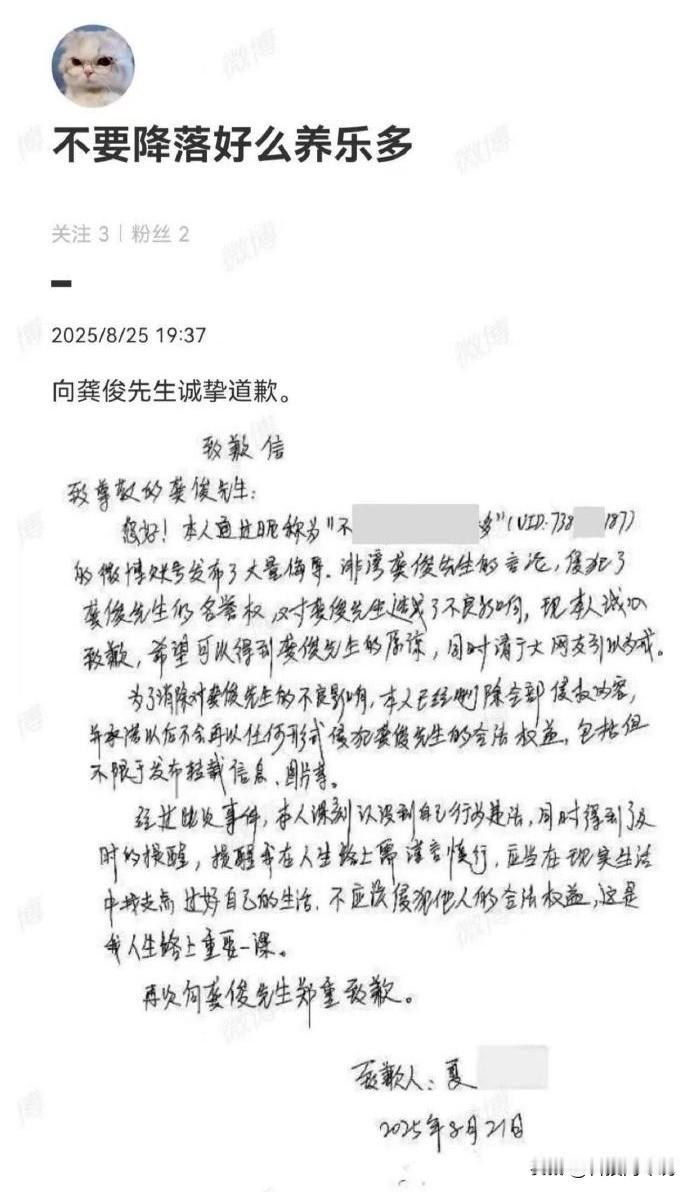 不要降落好么养乐多
关注 3 | 粉丝 2
2025/8/25 19:37
向龚俊先生诚挚道歉。
致歉信
致尊敬的龚俊先生：
您好！本人通过昵称为"不 多"(UID:738 187)
的微博账号发布了大量侮辱、诽谤龚俊先生的言论，侵犯了
龚俊先生的名誉权，对龚俊先生造成了不良影响，现本人诚心
致歉，希望可以得到龚俊先生的原谅，同时请广大网友引以为戒。
为了消除对龚俊先生的不良影响，本人已经删除全部侵权内容，
并承诺以后不会再以任何形式侵犯龚俊先生的合法权益，包括但
不限于发布转载信息、图片等。
经过此次事件，本人深刻认识到自己行为违法，同时得到了及
时的提醒，提醒我在人生路上需谨言慎行，应当在现实生活
中找支点过好自己的生活，不应该侵犯他人的合法权益，这是
我人生路上重要一课。
再次向龚俊先生郑重致歉。
致歉人：夏
2025年8月21日
微博